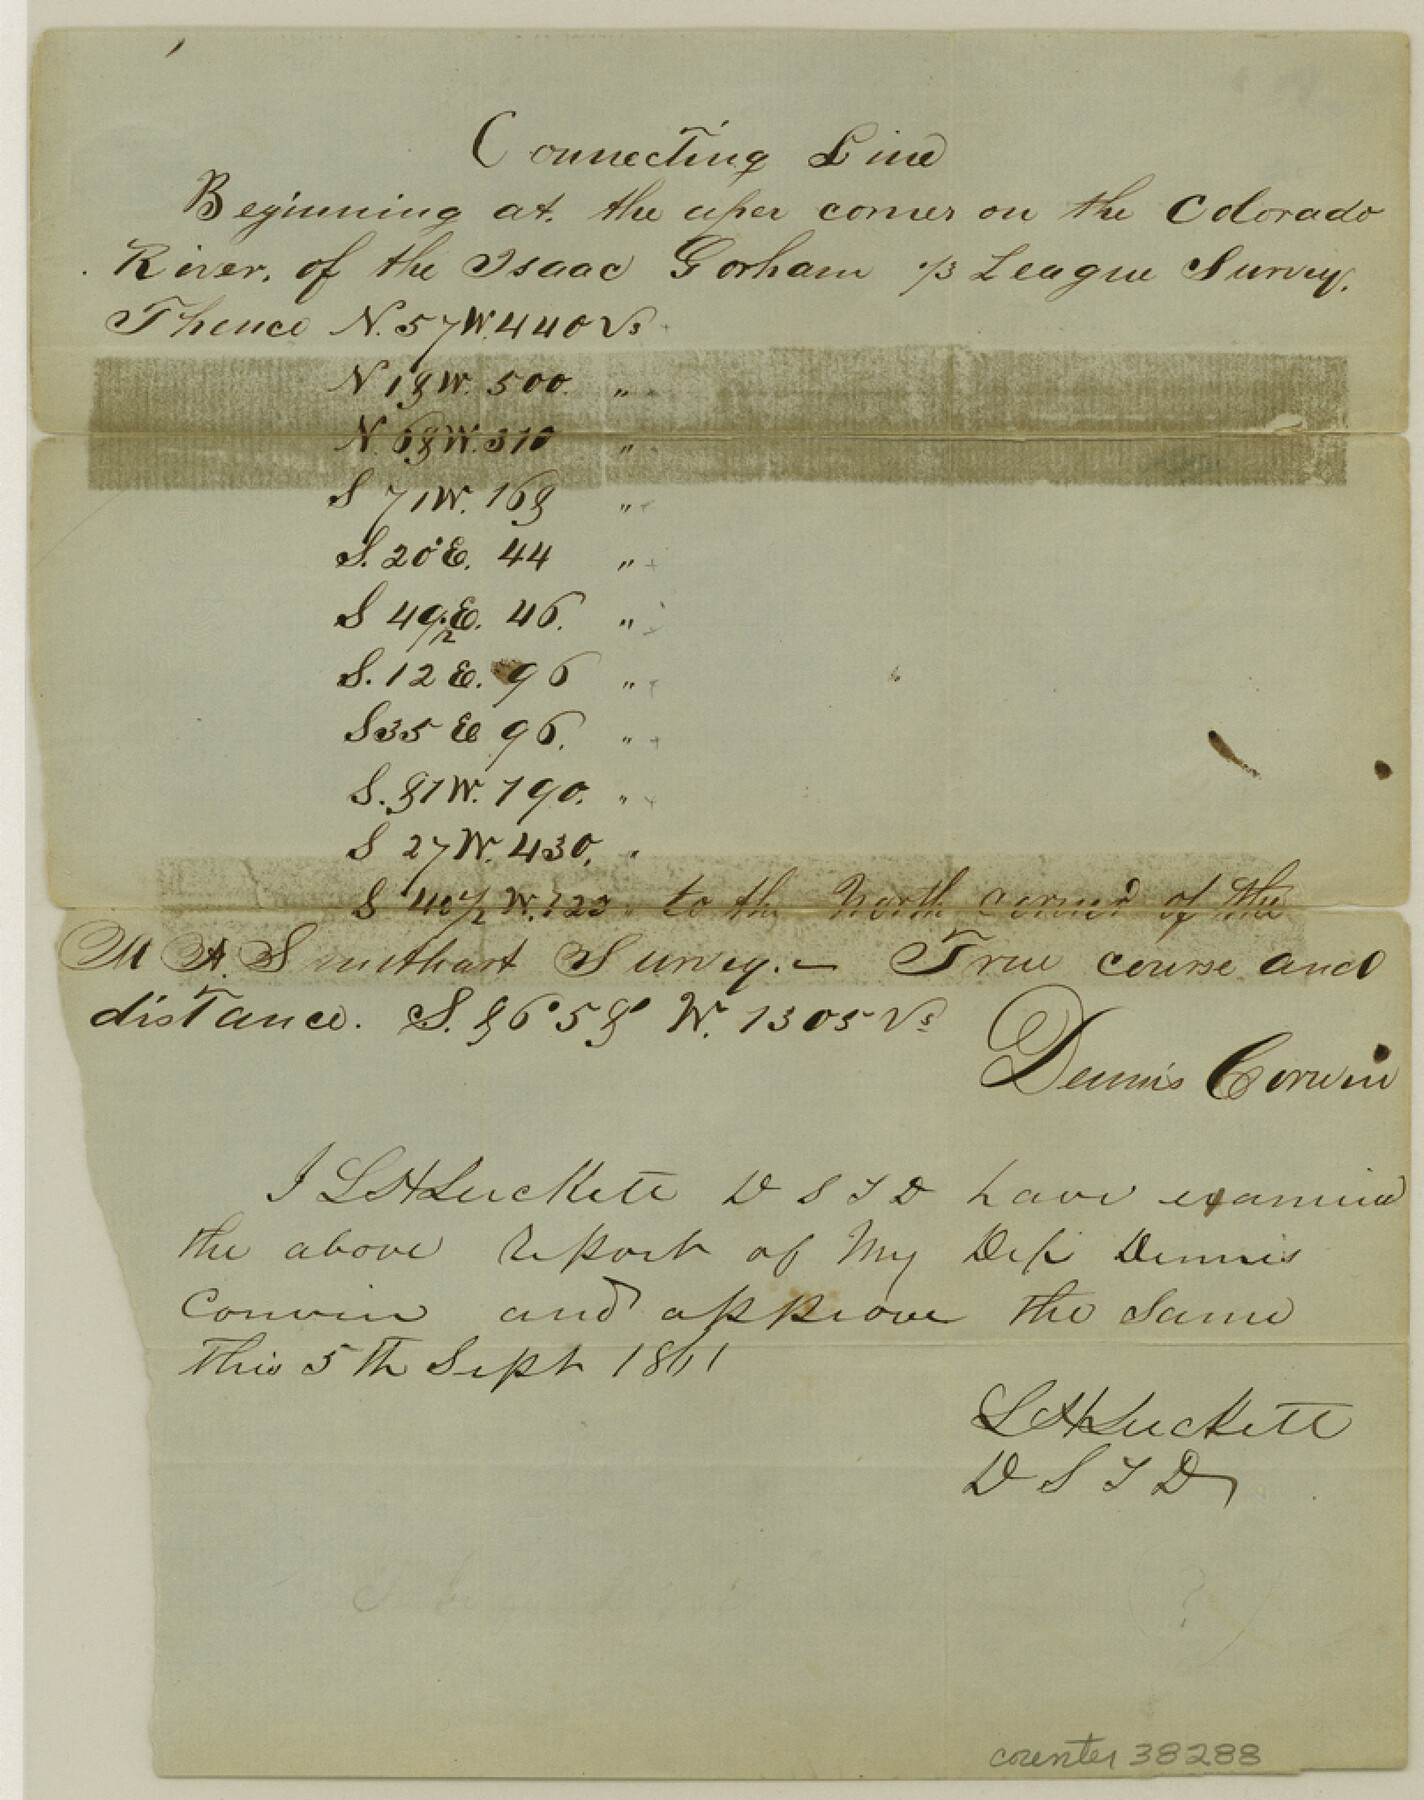 Connecting Line
Beginning at the uper corner on the Colorado
River, of the Isaac Gorham 1/3 League Survey.
Thence N. 57 W. 440 Vs
N 18 W. 500. "
N. 68 W. 310 "
S 71 W. 168 "
S. 20 E. 44 "
S 49 1/2 E. 46. "
S. 12 E. 96 "
S 35 E 96. "
S. 81 W. 190. "
S 27 W. 430. "
S 40 1/2 W. 123 " to the North corner of the
M A. Survey. — True course and
distance. S. 86° 58' W. 1305 Vs
Dennis Corwin
I L H Luckett D S T D have examined
the above report of My Dep Dennis
Corwin and approve the same
this 5th Sept 1861
L H Luckett
D S T D
?
counter 38288